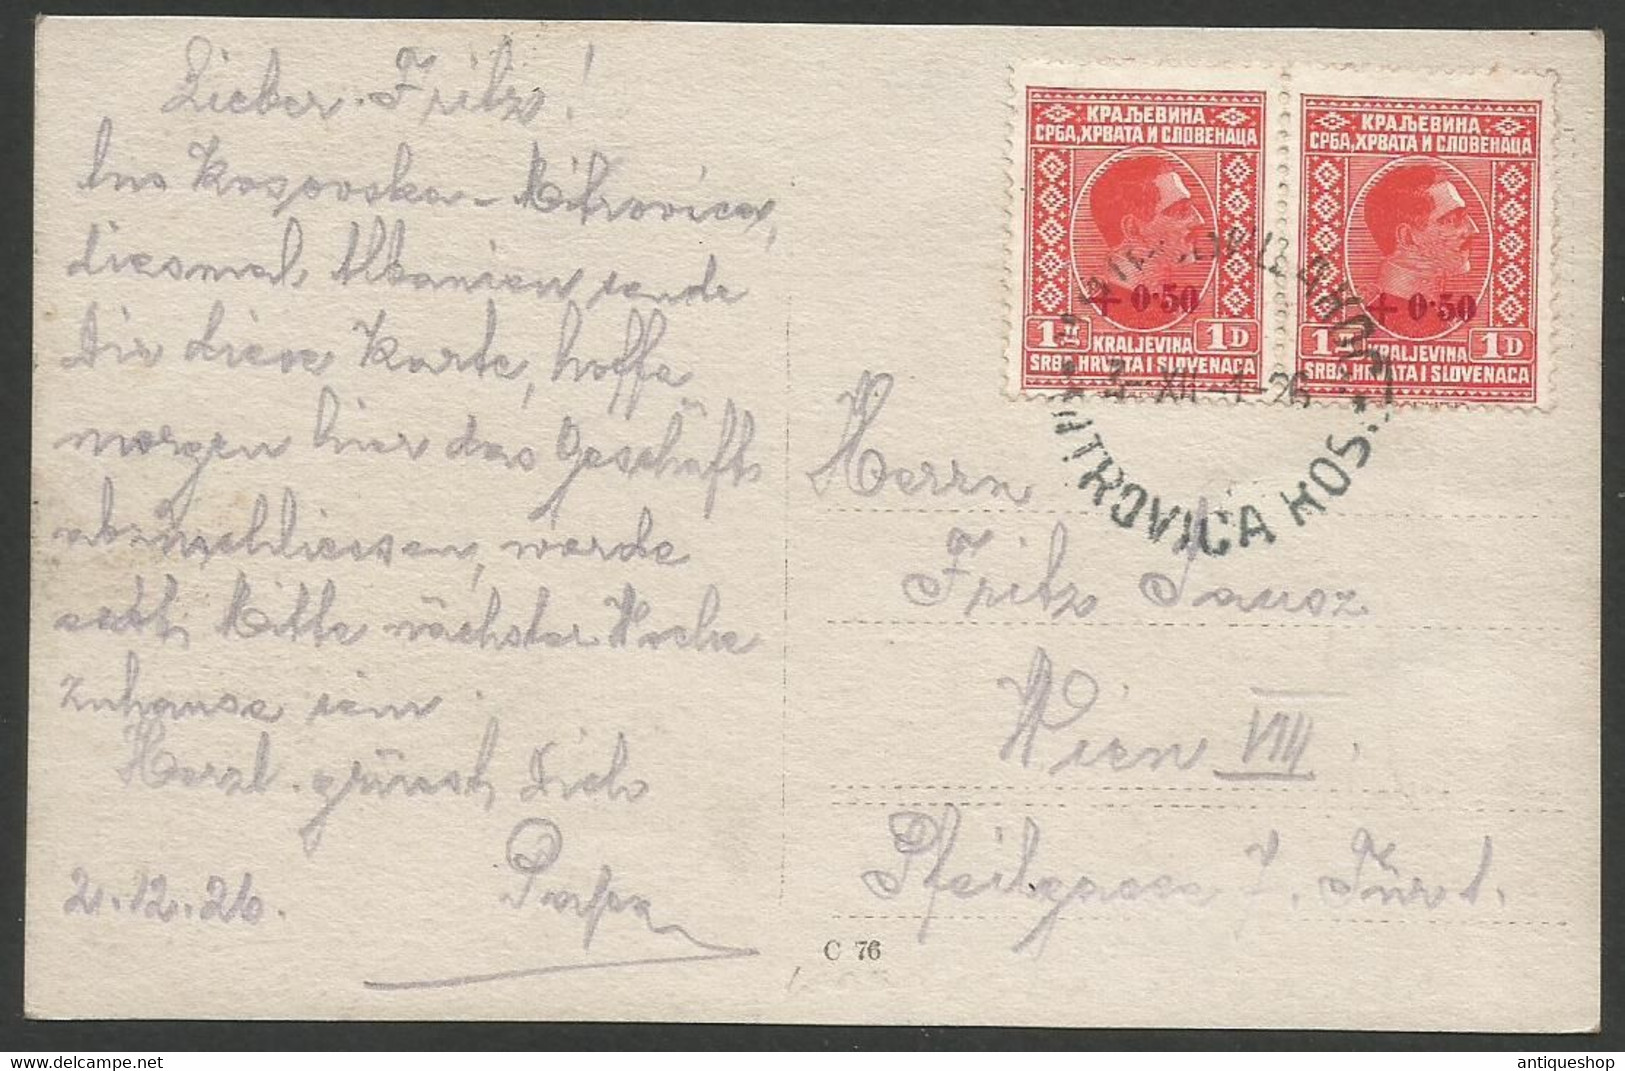 Lieber Fritz!
Aus Kosovska-Mitrovica,
diesmal Albanien sende
Dir diese Karte, hoffe
morgen hier das Geschäft
abzuschliessen, werde
Mitte nächster Woche
zuhause sein.
Herzl. grüsst Dich
Papa
2.12.26.
КРАЉЕВИНА
СРБА, ХРВАТА И СЛОВЕНАЦА
+ 0·50
1Д 1D
KRALJEVINA
SRBA, HRVATA I SLOVENACA
КРАЉЕВИНА
СРБА, ХРВАТА И СЛОВЕНАЦА
+ 0·50
1D
KRALJEVINA
SRBA, HRVATA I SLOVENACA
XII 26
MITROVICA KOS.
Herrn
Fritz
Wien VIII.
Pfeilgasse 7. Tür 1.
C 76
antiqueshop